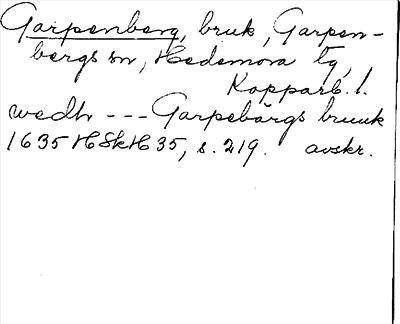 Garpenberg, bruk, Garpen-
bergs sn, Hedemora tg,
Kopparb. l.
wedh --- Garpebärgs bruuk
1635 HSkH 35, s. 219. avskr.